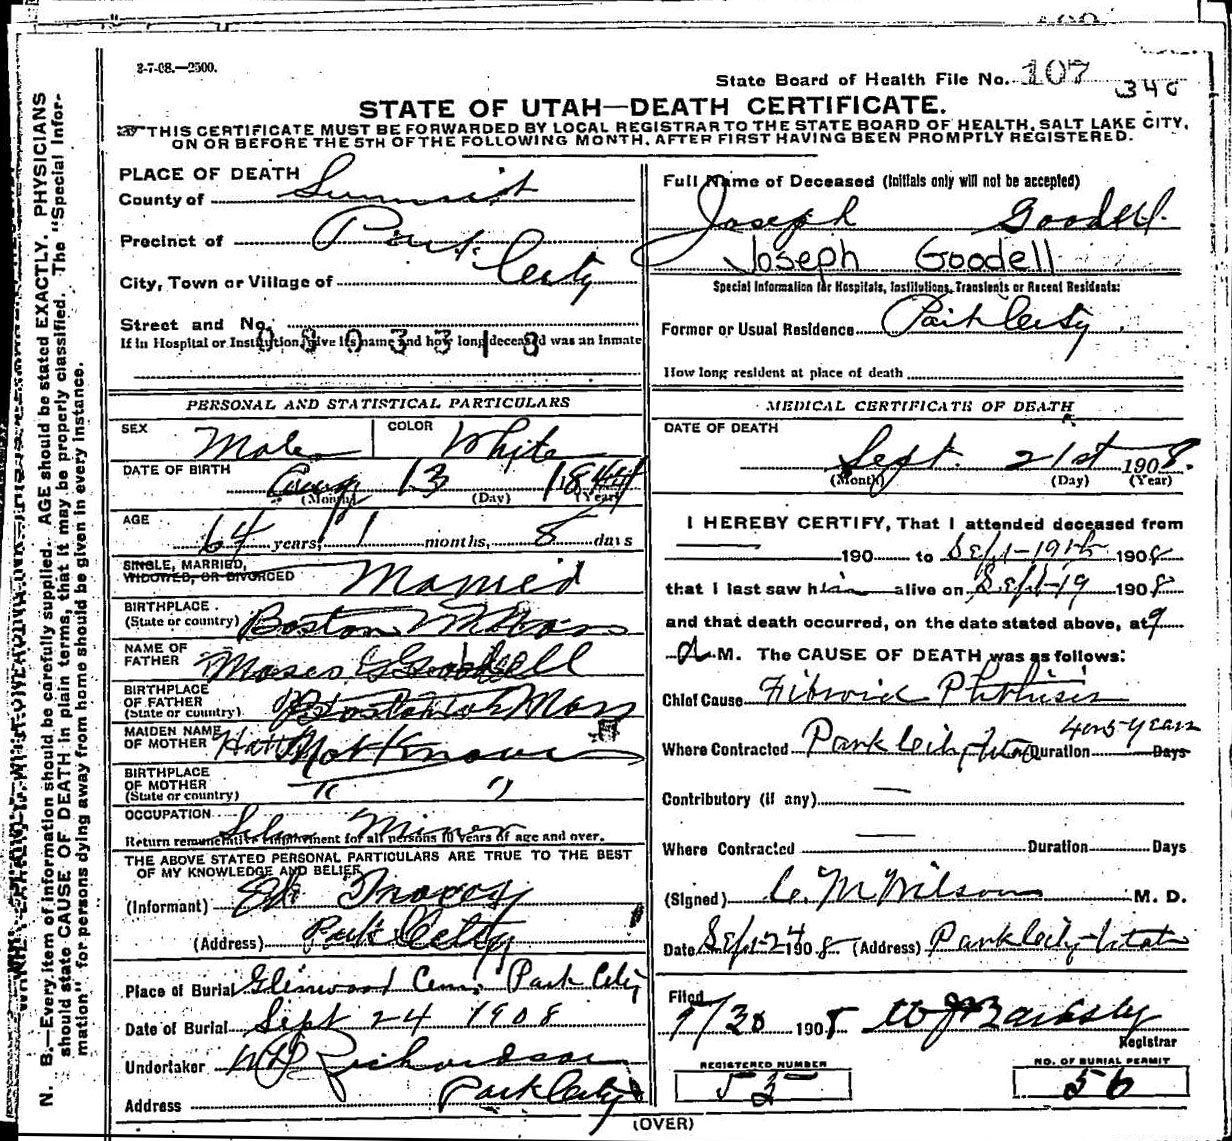 3-7-08.—2500.
State Board of Health File No. 107
340
STATE OF UTAH—DEATH CERTIFICATE.
THIS CERTIFICATE MUST BE FORWARDED BY LOCAL REGISTRAR TO THE STATE BOARD OF HEALTH, SALT LAKE CITY,
ON OR BEFORE THE 5TH OF THE FOLLOWING MONTH, AFTER FIRST HAVING BEEN PROMPTLY REGISTERED.
N. B.—Every item of information should be carefully supplied. AGE should be stated EXACTLY. PHYSICIANS
should state CAUSE OF DEATH in plain terms, that it may be properly classified. The "Special Infor-
mation" for persons dying away from home should be given in every instance.
PLACE OF DEATH
County of Summit
Precinct of Park City
City, Town or Village of
Street and No.
If in Hospital or Institution, give its name and how long deceased was an Inmate
PERSONAL AND STATISTICAL PARTICULARS
SEX Male COLOR White
DATE OF BIRTH
Aug 13 1844
(Month) (Day) (Year)
AGE
64 years, 1 months, 8 days
SINGLE, MARRIED,
WIDOWED, OR DIVORCED Married
BIRTHPLACE
(State or country) Boston Mass
NAME OF
FATHER Moses G Goodell
BIRTHPLACE
OF FATHER
(State or country) Mass
MAIDEN NAME
OF MOTHER Not Known
BIRTHPLACE
OF MOTHER
(State or country) " "
OCCUPATION
Miner
Return remunerative employment for all persons 10 years of age and over.
THE ABOVE STATED PERSONAL PARTICULARS ARE TRUE TO THE BEST
OF MY KNOWLEDGE AND BELIEF
(Informant)
(Address) Park City
Place of Burial Glenwood Cem. Park City
Date of Burial Sept 24 1908
Undertaker Richardson
Address Park City
Full Name of Deceased (Initials only will not be accepted)
Joseph Goodell
Joseph Goodell
Special Information for Hospitals, Institutions, Transients or Recent Residents:
Former or Usual Residence Park City
How long resident at place of death
MEDICAL CERTIFICATE OF DEATH
DATE OF DEATH
Sept. 21st 1908.
(Month) (Day) (Year)
I HEREBY CERTIFY, That I attended deceased from
190 to Sept-19th 1908
that I last saw him alive on Sept-19 1908
and that death occurred, on the date stated above, at 9
A M. The CAUSE OF DEATH was as follows:
Chief Cause Fibroid Phthisis
Where Contracted Park City-Utah Duration 4 or 5 years Days
Contributory (if any) —
Where Contracted — Duration Days
(Signed) C. M Wilson M. D.
Date Sept-24 1908 (Address) Park City-Utah
Filed
9/30 1908
Registrar
REGISTERED NUMBER
52
NO. OF BURIAL PERMIT
56
(OVER)